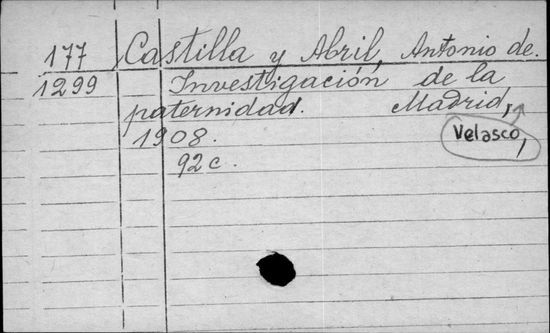 177 Castilla y Abril, Antonio de.
1299 Investigación de la
paternidad. Madrid,
Velasco,
1908.
92 c.